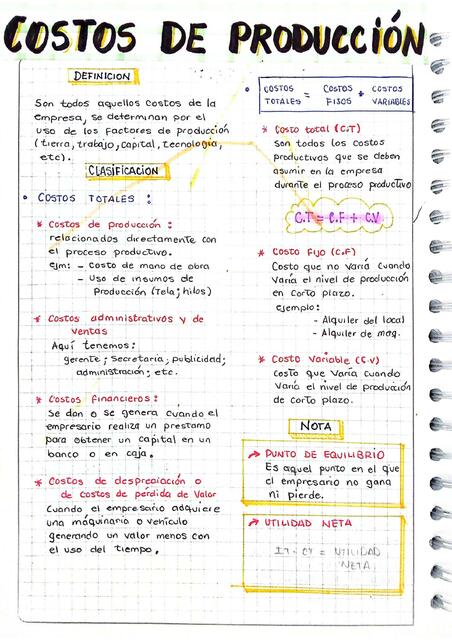 COSTOS DE PRODUCCIÓN
DEFINICION
Son todos aquellos costos de la
empresa, se determinan por el
uso de los factores de producción
(tierra, trabajo, capital, tecnología,
etc).
CLASIFICACION
• COSTOS TOTALES :
* Costos de producción :
relacionados directamente con
el proceso productivo.
ejm: - Costo de mano de obra
- Uso de insumos de
Producción (Tela; hilos)
* Costos administrativos y de
ventas
Aquí tenemos:
gerente; Secretaria; publicidad;
administración; etc.
* Costos financieros:
Se dan o se genera cuando el
empresario realiza un prestamo
para obtener un capital en un
banco o en caja.
* Costos de despreciación o
de costos de perdida de valor
Cuando el empresario adquiere
una máquinaria o vehículo
generando un valor menos con
el uso del tiempo.
• COSTOS TOTALES = COSTOS FIJOS + COSTOS VARIABLES
* Costo total (C.T)
Son todos los costos
productivos que se deben
asumir en la empresa
durante el proceso productivo
C.T = C.F + C.V
* Costo Fijo (C.F)
Costo que no varia cuando
varía el nivel de producción
en corto plazo.
ejemplo:
- Alquiler del local
- Alquiler de maq.
* Costo Variable (C.V)
Costo que varía cuando
varía el nivel de producción
de corto plazo.
NOTA
→ PUNTO DE EQUILIBRIO
Es aquel punto en el que
el empresario no gana
ni pierde.
→ UTILIDAD NETA
IT - CT = UTILIDAD
NETA